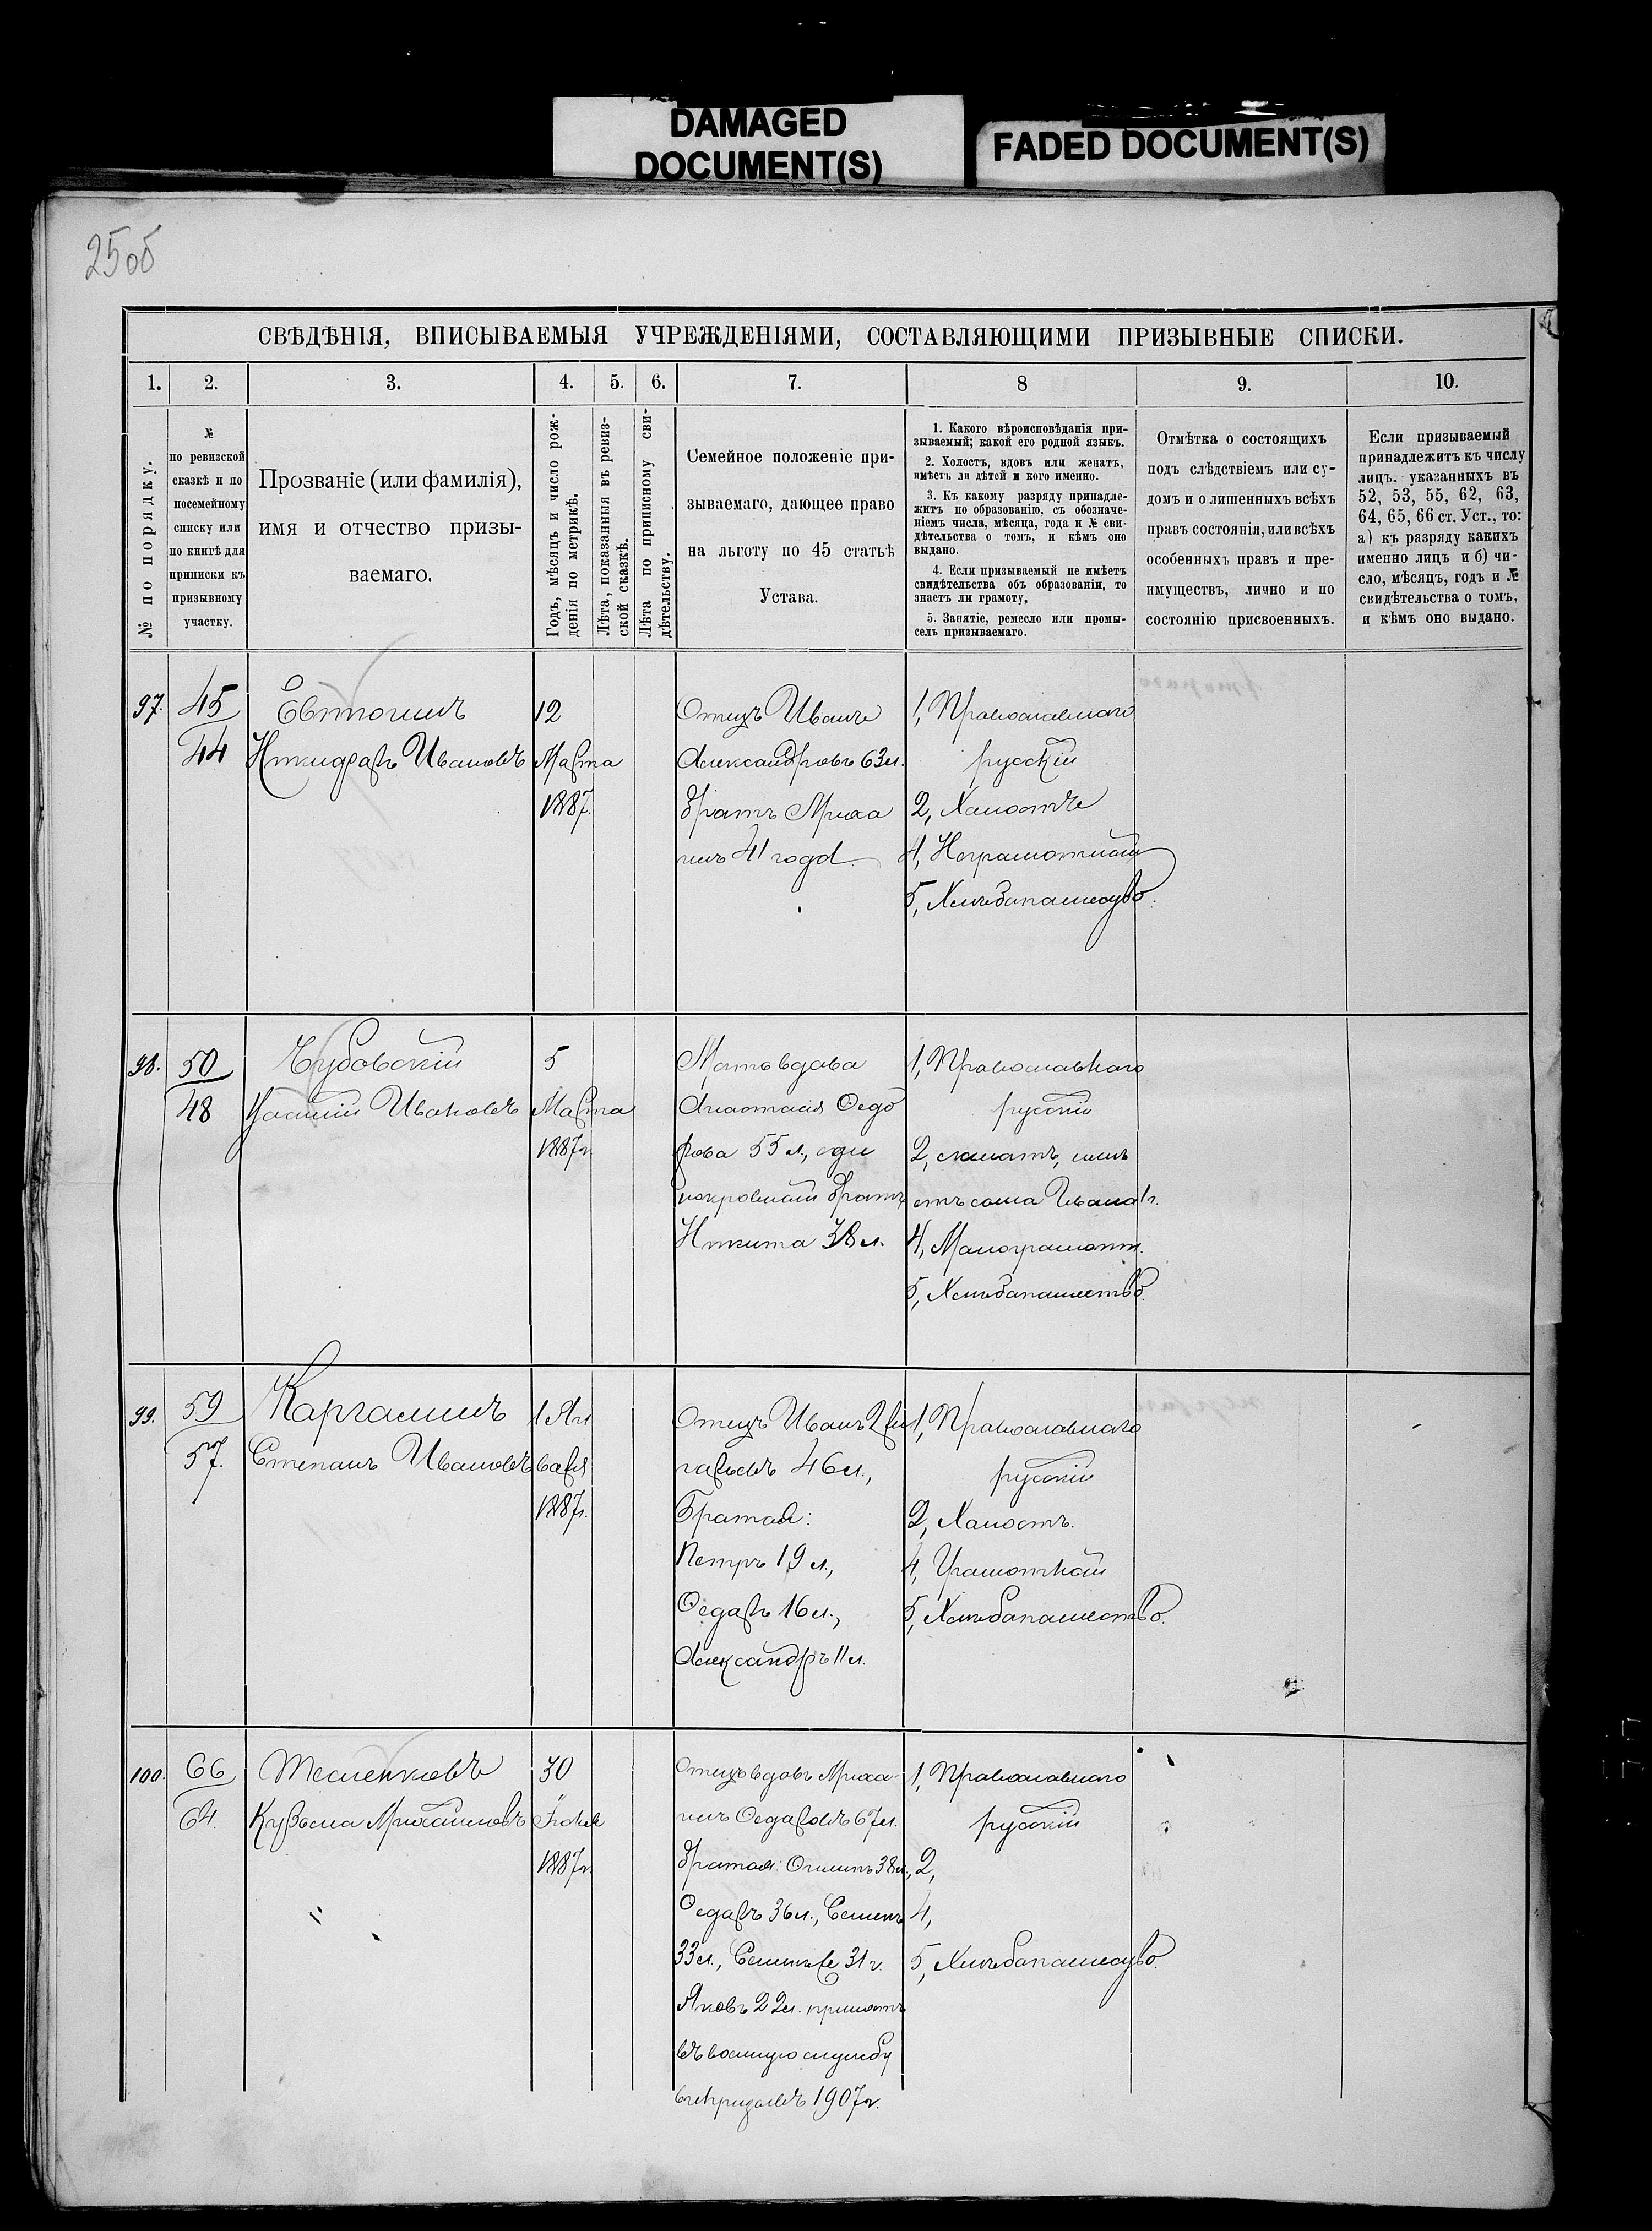 DAMAGED
DOCUMENT(S)
FADED DOCUMENT(S)
25об
СВѢДѢНІЯ, ВПИСЫВАЕМЫЯ УЧРЕЖДЕНІЯМИ, СОСТАВЛЯЮЩИМИ ПРИЗЫВНЫЕ СПИСКИ.
1. 2. 3. 4. 5. 6. 7. 8 9. 10.
№ по порядку.
№
по ревизской
сказкѣ и по
посемейному
списку или
по книгѣ для
приписки къ
призывному
участку.
Прозваніе (или фамилія),
имя и отчество призы-
ваемаго.
Годъ, мѣсяцъ и число рож-
денія по метрикѣ.
Лѣта, показанныя въ ревиз-
ской сказкѣ.
Лѣта по приписному сви-
дѣтельству.
Семейное положеніе при-
зываемаго, дающее право
на льготу по 45 статьѣ
Устава.
1. Какого вѣроисповѣданія при-
зываемый; какой его родной языкъ.
2. Холостъ, вдовъ или женатъ,
имѣетъ ли дѣтей и кого именно.
3. Къ какому разряду принадле-
житъ по образованію, съ обозначе-
ніемъ числа, мѣсяца, года и № сви-
дѣтельства о томъ, и кѣмъ оно
выдано.
4. Если призываемый не имѣетъ
свидѣтельства объ образованіи, то
знаетъ ли грамоту,
5. Занятіе, ремесло или промы-
селъ призываемаго.
Отмѣтка о состоящихъ
подъ слѣдствіемъ или су-
домъ и о лишенныхъ всѣхъ
правъ состоянія, или всѣхъ
особенныхъ правъ и пре-
имуществъ, лично и по
состоянію присвоенныхъ.
Если призываемый
принадлежитъ къ числу
лицъ, указанныхъ въ
52, 53, 55, 62, 63,
64, 65, 66 ст. Уст., то:
а) къ разряду какихъ
именно лицъ и б) чи-
сло, мѣсяцъ, годъ и №
свидѣтельства о томъ,
и кѣмъ оно выдано.
97. 45
44
Евтюшинъ
Никифоръ Ивановъ
12
Марта
1887.
Отецъ Иванъ
Александровъ 63 л.
братъ Миха
илъ 41 года
1, Православнаго
русскій
2, Холостъ
4, Неграмотный
5, Хлѣбопашество.
98. 50
48
Иванов
5
Марта
1887 г
Мать вдова
Анастасія Федо
рова 55 л., еди
нокровный братъ
Никита 38 л.
1, Православнаго
русскій
2, женатъ, имѣ
етъ сына Ивана 1 г.
4, Малограмотн.
5, Хлѣбопашество.
99. 59
57.
Каргашинъ
Степанъ Ивановъ
1 Ян
варя
1887 г.
Отецъ Иванъ
46 л.,
Братья:
Петръ 19 л.,
Федоръ 16 л.,
Александръ 11 л.
1, Православнаго
русскій
2, Холостъ.
4, Грамотный
5, Хлѣбопашество.
100. 66
64.
Тесленковъ
Кузьма Михайловъ
30
1887 г
Отецъ вдовъ Миха
илъ Федоровъ 67 л.
братья: Осипъ 38 л.,
Федоръ 36 л., Семенъ
33 л., 31 г.
Яковъ 22 л. принятъ
въ военную службу
въ призывъ 1907 г.
1, Православнаго
русскій
2,
4,
5, Хлѣбопашество.